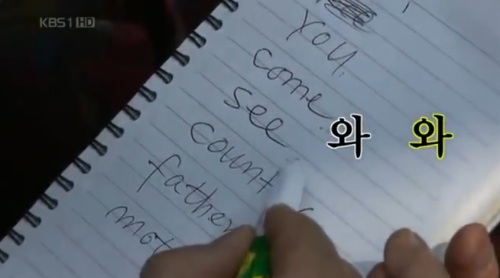 KBS1 HD
you.
come.
see
count
father
mot
와 와